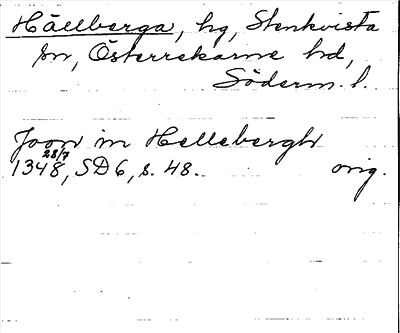 Hällberga, hg, Stenkvista
sn, Österrekarne hd,
Söderm. l.
Joon in Hellebergh
28/7
1348, SD 6, s. 48. orig.